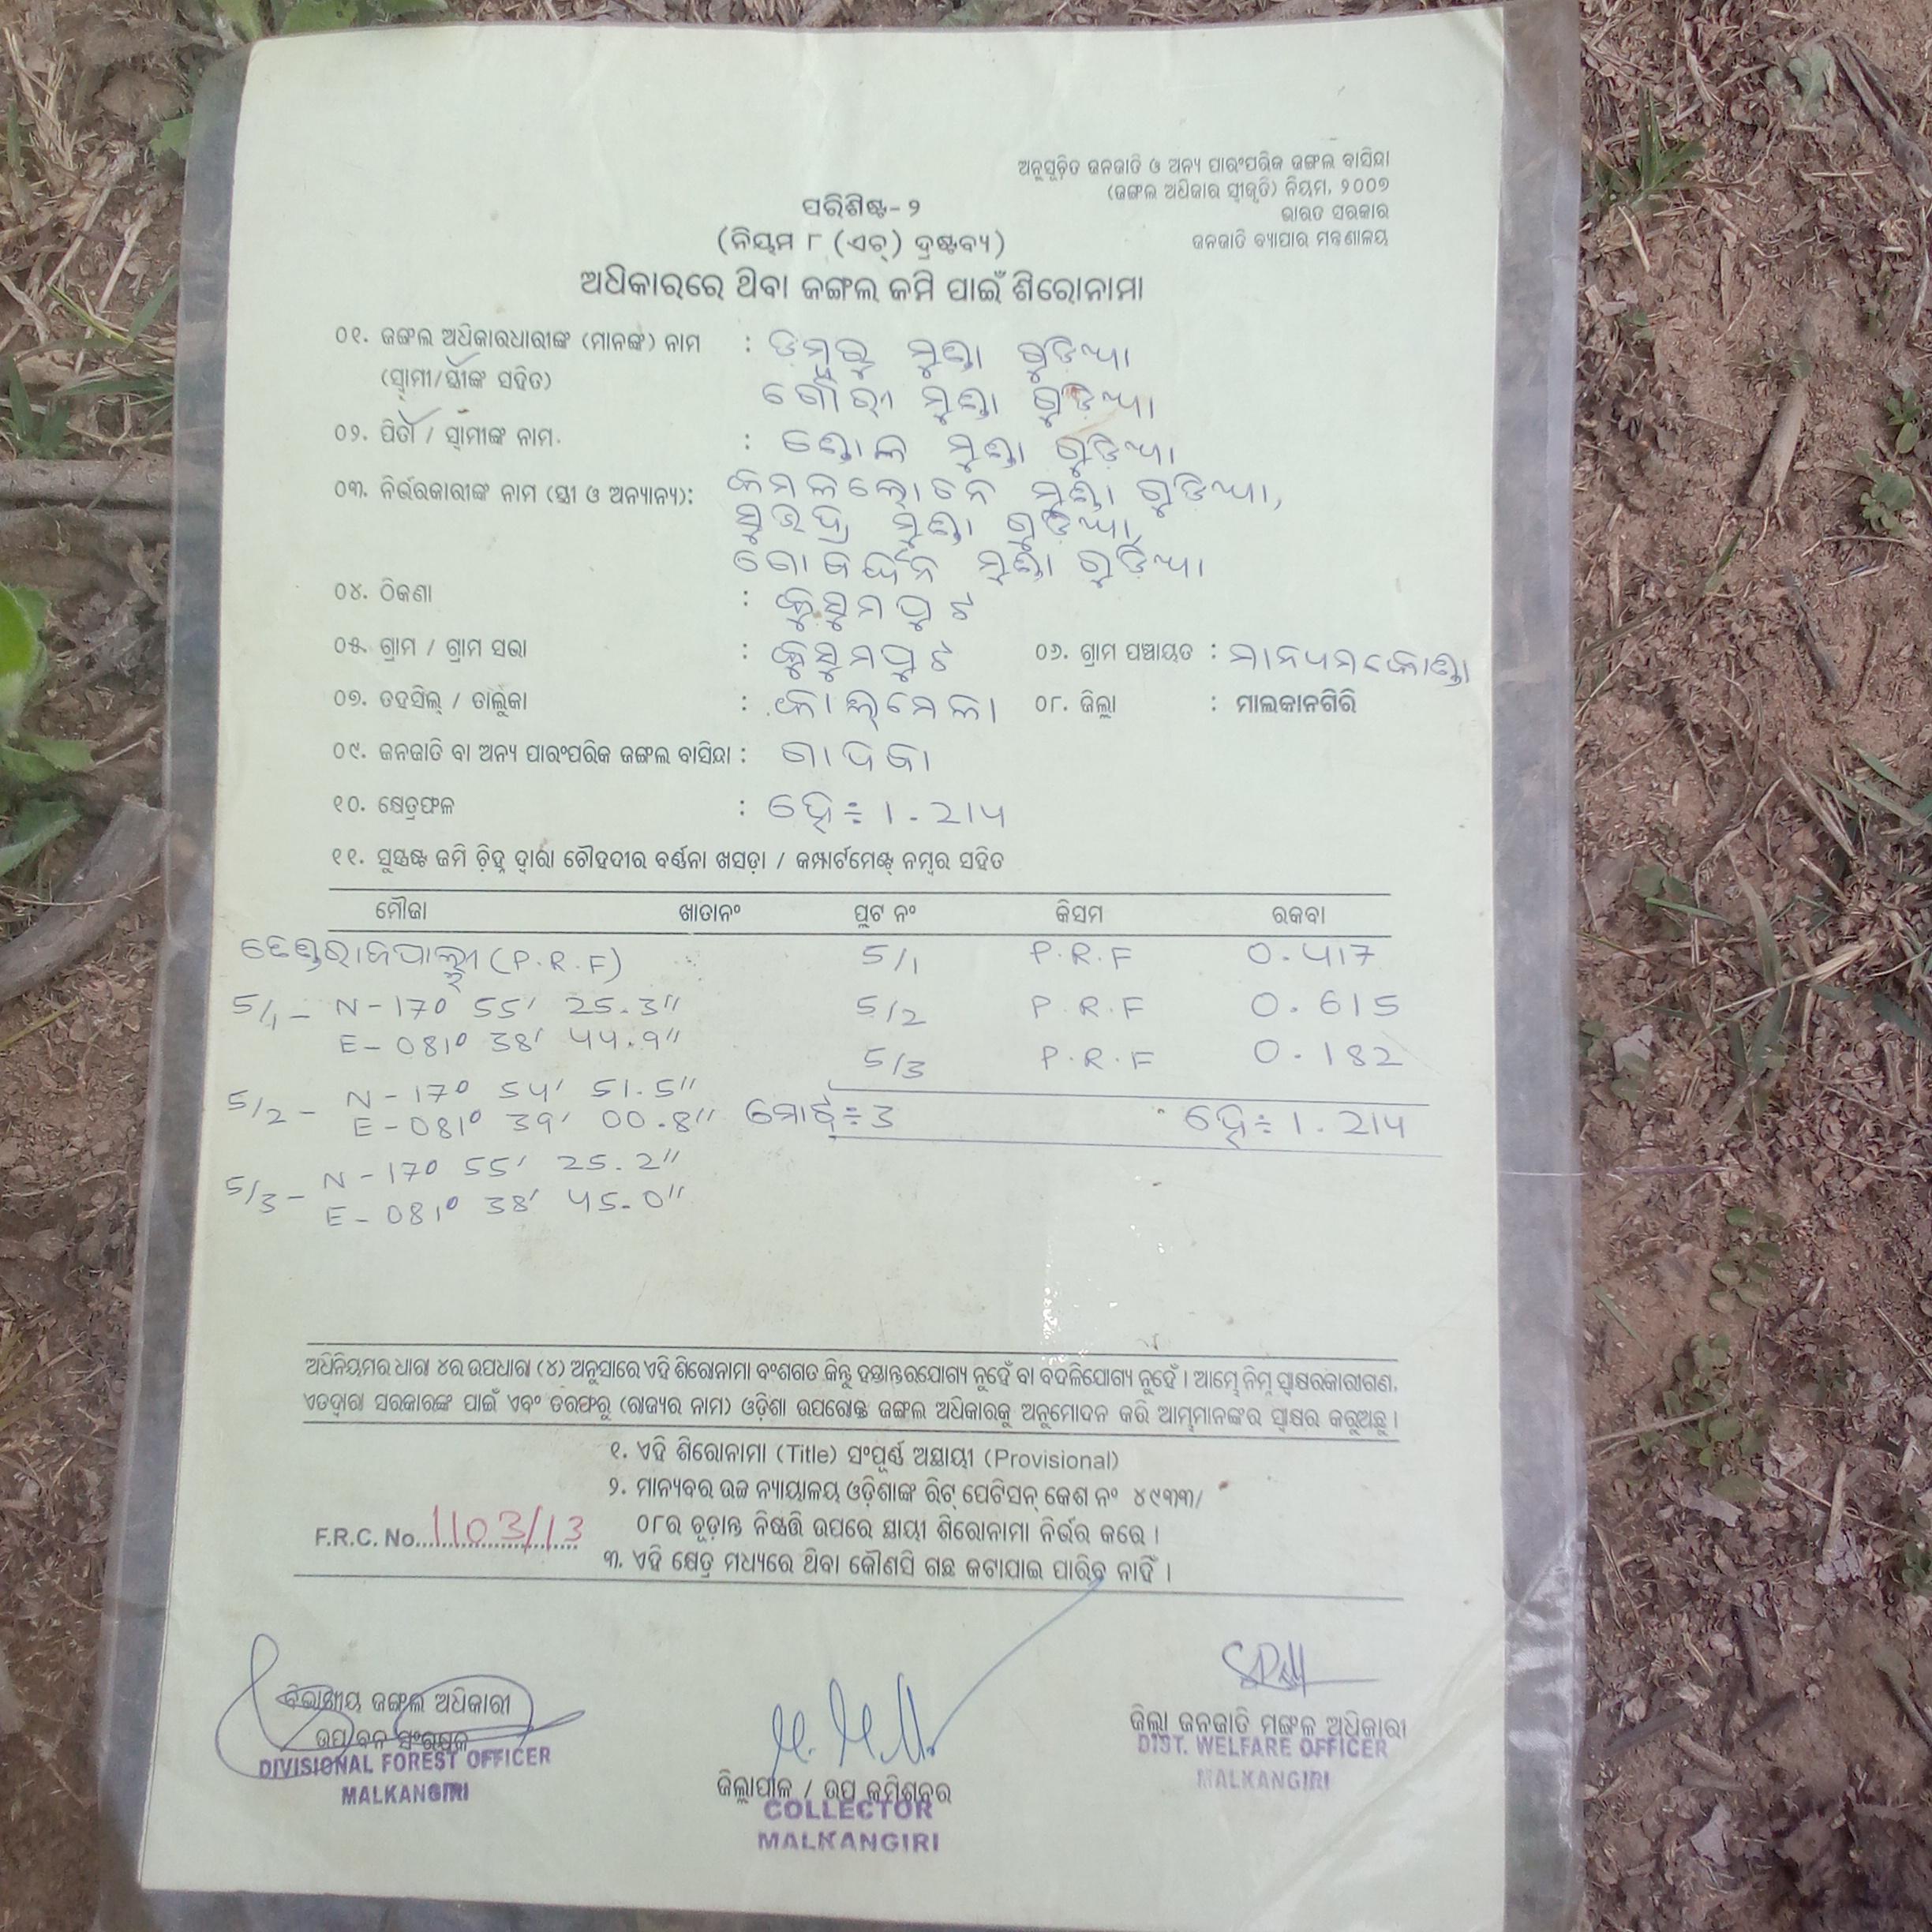 ଅନୁସୂଚିତ ଜନଜାତି ଓ ଅନ୍ୟ ପାରଂପରିକ ଜଙ୍ଗଲ ବାସିନ୍ଦା
(ଜଙ୍ଗଲ ଅଧିକାର ସ୍ୱୀକୃତି) ନିୟମ, ୨୦୦୭
ଭାରତ ସରକାର
ଜନଜାତି ବ୍ୟାପାର ମନ୍ତ୍ରଣାଳୟ
ପରିଶିଷ୍ଟ-୨
(ନିୟମ ୮ (ଏଚ୍) ଦ୍ରଷ୍ଟବ୍ୟ)
ଅଧିକାରରେ ଥିବା ଜଙ୍ଗଲ ଜମି ପାଇଁ ଶିରୋନାମା
୦୧. ଜଙ୍ଗଲ ଅଧିକାରଧାରୀଙ୍କ (ମାନଙ୍କ) ନାମ : ଡମ୍ବରୁ ମୁଣ୍ଡା ଗୁଡ଼ିଆ
(ସ୍ୱାମୀ/ସ୍ତ୍ରୀଙ୍କ ସହିତ) ଗୌରୀ ମୁଣ୍ଡା ଗୁଡ଼ିଆ
୦୨. ପିତା / ସ୍ୱାମୀଙ୍କ ନାମ : ମୁଣ୍ଡା ଗୁଡ଼ିଆ
୦୩. ନିର୍ଭରକାରୀଙ୍କ ନାମ (ସ୍ତ୍ରୀ ଓ ଅନ୍ୟାନ୍ୟ): କମଳଲୋଚନ ମୁଣ୍ଡା ଗୁଡ଼ିଆ,
ସୁଭଦ୍ରା ମୁଣ୍ଡା ଗୁଡ଼ିଆ,
ଗୋବର୍ଦ୍ଧନ ମୁଣ୍ଡା ଗୁଡ଼ିଆ
୦୪. ଠିକଣା : କୁସୁମପୁଟ
୦୫. ଗ୍ରାମ / ଗ୍ରାମ ସଭା : କୁସୁମପୁଟ ୦୬. ଗ୍ରାମ ପଞ୍ଚାୟତ : ମାନ୍ୟମକୋଣ୍ଡା
୦୭. ତହସିଲ୍ / ତାଲୁକା : କାଲିମେଳା ୦୮. ଜିଲ୍ଲା : ମାଲକାନଗିରି
୦୯. ଜନଜାତି ବା ଅନ୍ୟ ପାରଂପରିକ ଜଙ୍ଗଲ ବାସିନ୍ଦା : ଗାଦବା
୧୦. କ୍ଷେତ୍ରଫଳ : ହେ÷ 1.214
୧୧. ସୁସ୍ପଷ୍ଟ ଜମି ଚିହ୍ନ ଦ୍ୱାରା ଚୌହଦୀର ବର୍ଣ୍ଣନା ଖସଡ଼ା / କମ୍ପାର୍ଟମେଣ୍ଟ୍ ନମ୍ବର ସହିତ
ମୌଜା ଖାତାନଂ ପ୍ଲଟ ନଂ କିସମ ରକବା
(P.R.F) 5/1 P.R.F 0.417
5/1 - N - 17° 55' 25.3" 5/2 P.R.F 0.615
E - 081° 38' 44.9" 5/3 P.R.F 0.182
5/2 - N - 17° 54' 51.5"
E - 081° 39' 00.8" ମୋଟ÷3 ହେ÷ 1.214
5/3 - N - 17° 55' 25.2"
E - 081° 38' 45.0"
ଅଧିନିୟମର ଧାରା ୪ର ଉପଧାରା (୪) ଅନୁସାରେ ଏହି ଶିରୋନାମା ବଂଶଗତ କିନ୍ତୁ ହସ୍ତାନ୍ତରଯୋଗ୍ୟ ନୁହେଁ ବା ବଦଳିଯୋଗ୍ୟ ନୁହେଁ । ଆମ୍ଭେ ନିମ୍ନ ସ୍ୱାକ୍ଷରକାରୀଗଣ,
ଏତଦ୍ୱାରା ସରକାରଙ୍କ ପାଇଁ ଏବଂ ତରଫରୁ (ରାଜ୍ୟର ନାମ) ଓଡ଼ିଶା ଉପରୋକ୍ତ ଜଙ୍ଗଲ ଅଧିକାରକୁ ଅନୁମୋଦନ କରି ଆମ୍ଭମାନଙ୍କର ସ୍ୱାକ୍ଷର କରୁଅଛୁ ।
୧. ଏହି ଶିରୋନାମା (Title) ସଂପୂର୍ଣ୍ଣ ଅସ୍ଥାୟୀ (Provisional)
୨. ମାନ୍ୟବର ଉଚ୍ଚ ନ୍ୟାୟାଳୟ ଓଡ଼ିଶାଙ୍କ ରିଟ୍ ପେଟିସନ୍ କେଶ ନଂ ୪୯୩୩/
୦୮ର ଚୂଡ଼ାନ୍ତ ନିଷ୍ପତ୍ତି ଉପରେ ସ୍ଥାୟୀ ଶିରୋନାମା ନିର୍ଭର କରେ ।
F.R.C. No. 1103/13
୩. ଏହି କ୍ଷେତ୍ର ମଧ୍ୟରେ ଥିବା କୌଣସି ଗଛ କଟାଯାଇ ପାରିବ ନାହିଁ ।
ବିଭାଗୀୟ ଜଙ୍ଗଲ ଅଧିକାରୀ
ଉପ ବନ ସଂରକ୍ଷକ
DIVISIONAL FOREST OFFICER
MALKANGIRI
ଜିଲ୍ଲାପାଳ / ଉପ କମିଶନର
COLLECTOR
MALKANGIRI
ଜିଲ୍ଲା ଜନଜାତି ମଙ୍ଗଳ ଅଧିକାରୀ
DIST. WELFARE OFFICER
MALKANGIRI